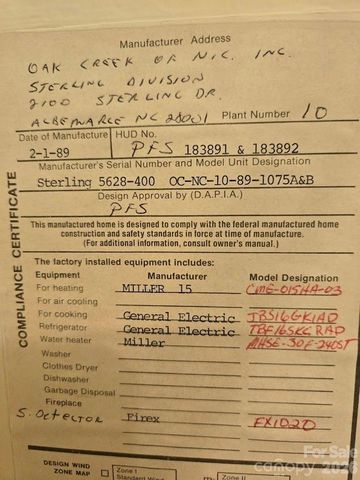 Manufacturer Address
OAK CREEK OF N.C. INC.
STERLING DIVISION
2100 STERLING DR.
ALBEMARLE NC 28001 Plant Number 10
Date of Manufacture HUD No.
2-1-89 PFS 183891 & 183892
Manufacturer's Serial Number and Model Unit Designation
Sterling 5628-400 OC-NC-10-89-1075A&B
Design Approval by (D.A.P.I.A.)
PFS
This manufactured home is designed to comply with the federal manufactured home
construction and safety standards in force at time of manufacture.
(For additional information, consult owner's manual.)
COMPLIANCE CERTIFICATE
The factory installed equipment includes:
Equipment Manufacturer Model Designation
For heating MILLER 15 CME-015HA-03
For air cooling
For cooking General Electric JBS16GK1AD
Refrigerator General Electric TBF16SKC RAD
Water heater Miller MHSE-30F-240ST
Washer
Clothes Dryer
Dishwasher
Garbage Disposal
Fireplace
S. Detector Firex FX1020
DESIGN WIND
ZONE MAP
Zone I
Standard Wind
Zone II
For Sale
canopy 2026